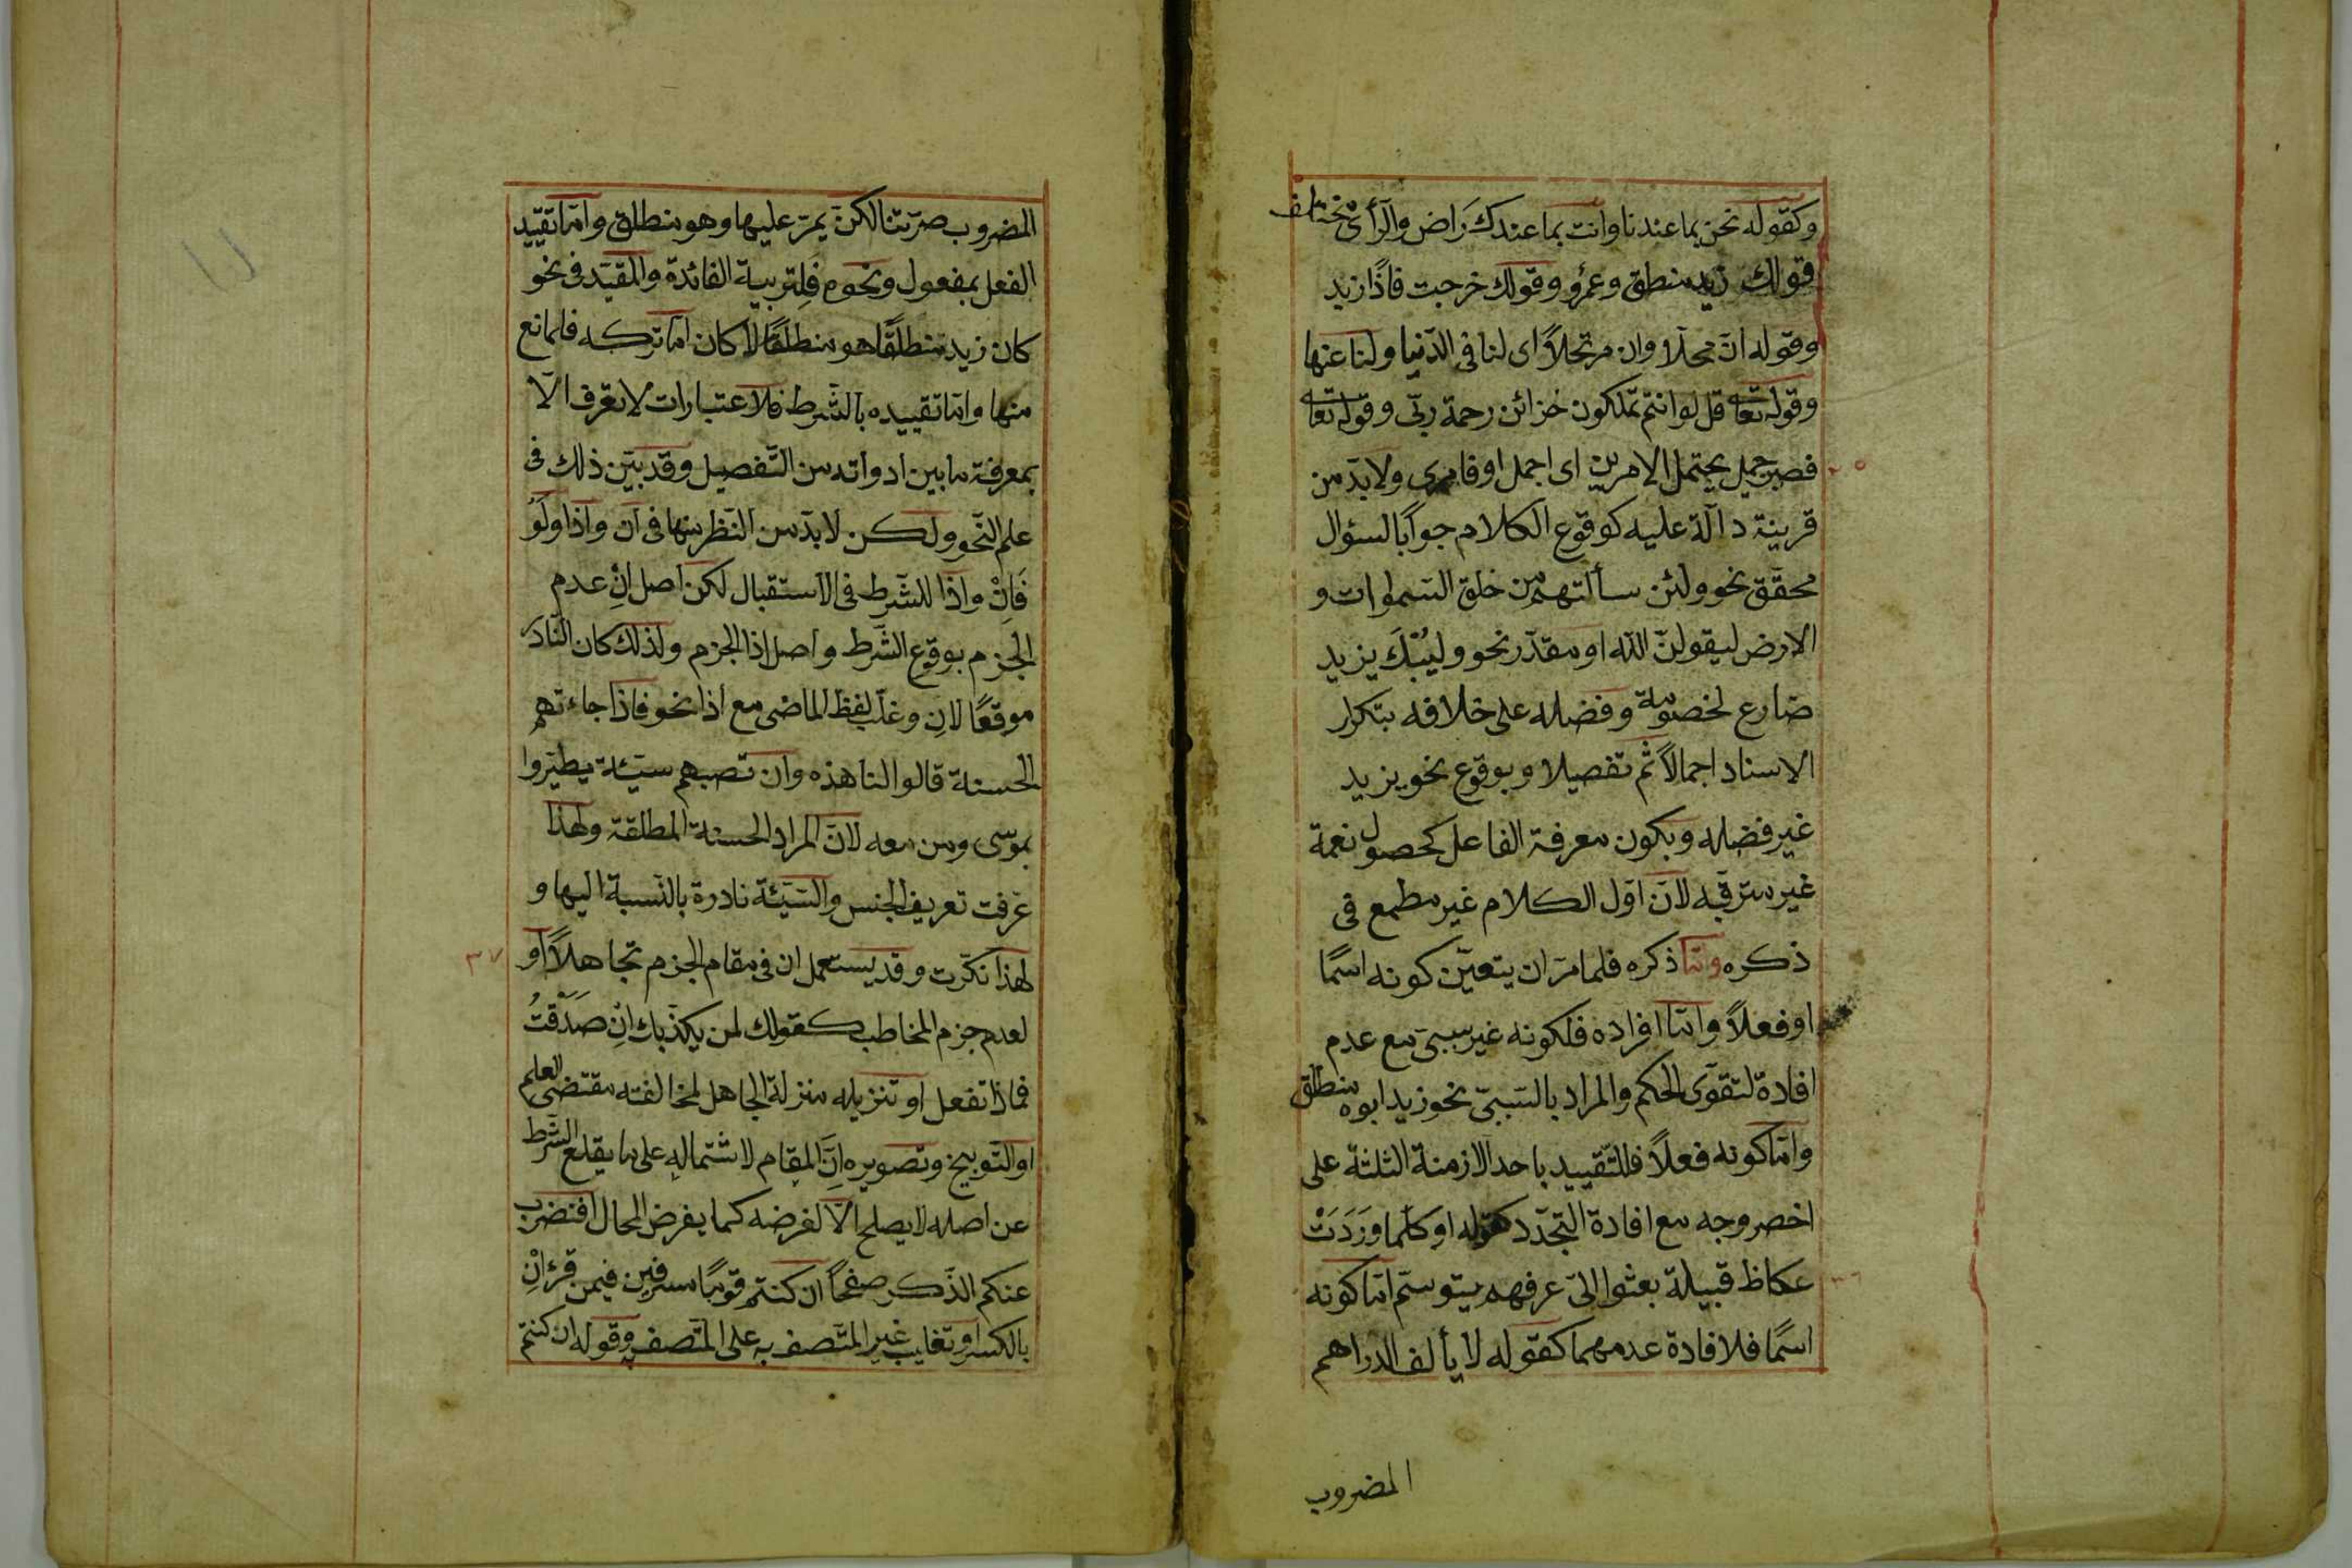 وكقوله نحن بما عندنا وانت بما عندك راض والرأى مختلف
قولك زيد منطلق وعمرو وقولك خرجت فاذا زيد
وقوله انّ محلّا وان مرتحلاً اى لنا فى الدّنيا ولنا عنها
وقوله تعا قل لو انتم تملكون خزائن رحمة ربّى وقوله تعا
فصبر جميل يحتمل الامرين اى اجمل او فامرى ولابدّ من
قرينة دالّة عليه كوقوع الكلام جوابًا لسؤال
محقّق نحو ولئن سألتهم من خلق السموات و
الارض ليقولنّ الله او مقدّر نحو وليُبْكَ يزيد
ضارع لخصومة وفضله على خلافه بتكرار
الاسناد اجمالاً ثم تفصيلا وبوقوع نحو يزيد
غير فضله وبكون معرفة الفاعل كحصول نعمة
غير مترقّبه لانّ اوّل الكلام غير مطمع فى
ذكره وامّا ذكره فلما مرّ ان يتعيّن كونه اسمًا
او فعلاً وامّا افراده فلكونه غير سببىّ مع عدم
افادة لتقوّى الحكم والمراد بالسّببىّ نحو زيد ابوه منطلق
وامّا كونه فعلاً فللتّقييد باحد الازمنة الثلثة على
اخصر وجه مع افادة التجدّد كقوله او كلّما وَرَدَتْ
عكاظ قبيلة بعثوا الىّ عرفهم يتوسّم امّا كونه
اسمًا فلافادة عدمهما كقوله لا يألف الدراهم
المضروب
المضروب صرّتنا لكن يمرّ عليها وهو منطلق وامّا تقييد
الفعل بمفعول ونحوه فلتربية الفائدة والمقيّد فى نحو
كان زيد منطلقًا هو منطلقًا لا كان امّا تركه فلمانع
منها وامّا تقييده بالشّرط فلاعتبارات لا تعرف الّا
بمعرفة ما بين ادواته من التّفصيل وقد بيّن ذلك فى
علم النّحو ولكن لابدّ من النّظر منها فى ان واذا ولو
فَاِنْ واذا للشّرط فى الاستقبال لكن اصل اِنْ عدم
الجزم بوقوع الشّرط واصل اذا الجزم ولذلك كان النّادر
موقعًا لاِن وغلب لفظ الماضى مع اذا نحو فاذا جاءتهم
الحسنة قالوا لنا هذه وان تصبهم سيّئة يطيّروا
بموسى ومن معه لانّ المراد الحسنة المطلقة ولهذا
عرّفت تعريف الجنس والسّيّئة نادرة بالنّسبة اليها و
لهذا نكّرت وقد يستعمل ان فى مقام الجزم تجاهلاً او
لعدم جزم المخاطب كقولك لمن يكذّبك اِنْ صَدَقْتُ
فماذا تفعل او تنزيله منزلة الجاهل لمخالفته مقتضى العلم
او التّوبيخ وتصويره انّ المقام لاشتماله على ما يقلع الشّرط
عن اصله لا يصلح الّا لفرضه كما يفرض المحال افنضرب
عنكم الذّكر صفحًا ان كنتم قومًا مسرفين فيمن قرء اِنْ
بالكسر او تغليب غير المتّصف به على المتّصف وقوله ان كنتم
٣٧